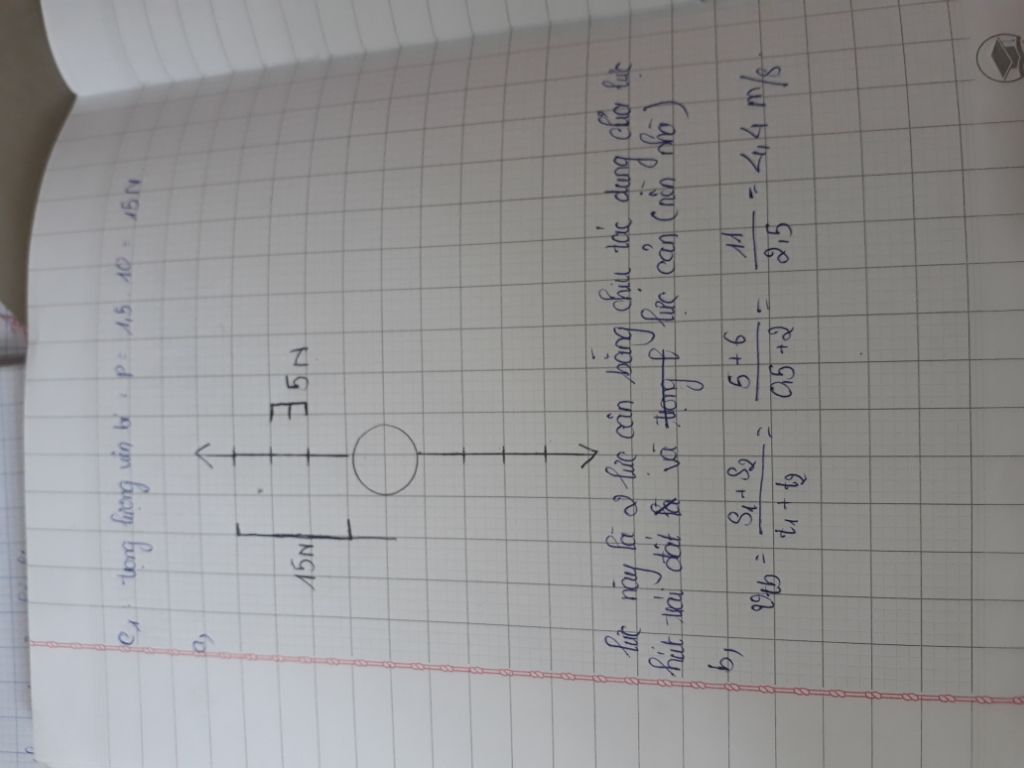 C1: trọng lượng viên bi: P = 1,5 . 10 = 15N
a,
15N
5N
lực này là 2 lực cân bằng chịu tác dụng của lực
hút trái đất và lực cản (cản nhà)
b,
vtb = S1 + S2 / t1 + t2 = 5 + 6 / 0,5 + 2 = 11 / 2,5 = 4,4 m/s